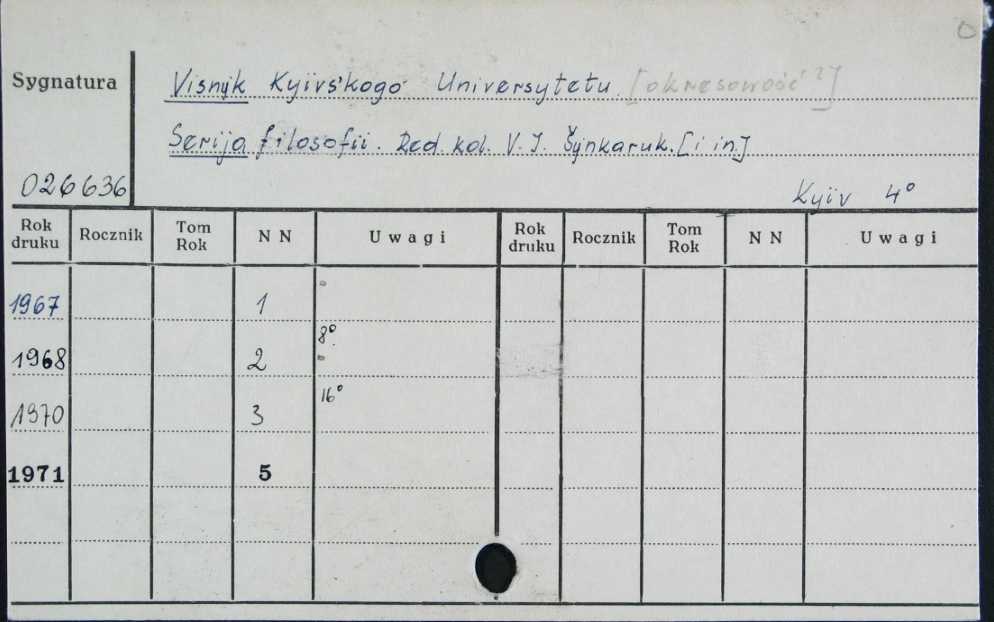 O
Sygnatura
Visnyk Kyïvs'kogo Universytetu [okresowość?]
Serija filosofii. Red. kol. V. I. Šynkaruk. [i in.]
026636
Kyïv 4°
Rok druku Rocznik Tom Rok N N Uwagi Rok druku Rocznik Tom Rok N N Uwagi
1967 1
8°
1968 2
16°
1970 3
1971 5